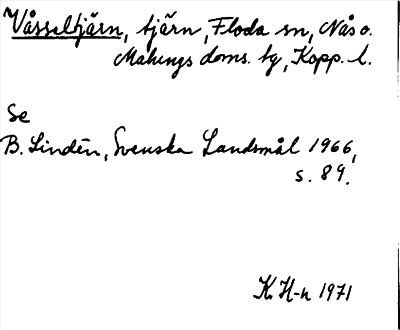 Våsseltjärn, tjärn, Floda sn, Nås o.
Malungs doms. hg, Kopp. l.
Se
B. Lindén, Svenska Landsmål 1966,
s. 89.
K. H-n 1971